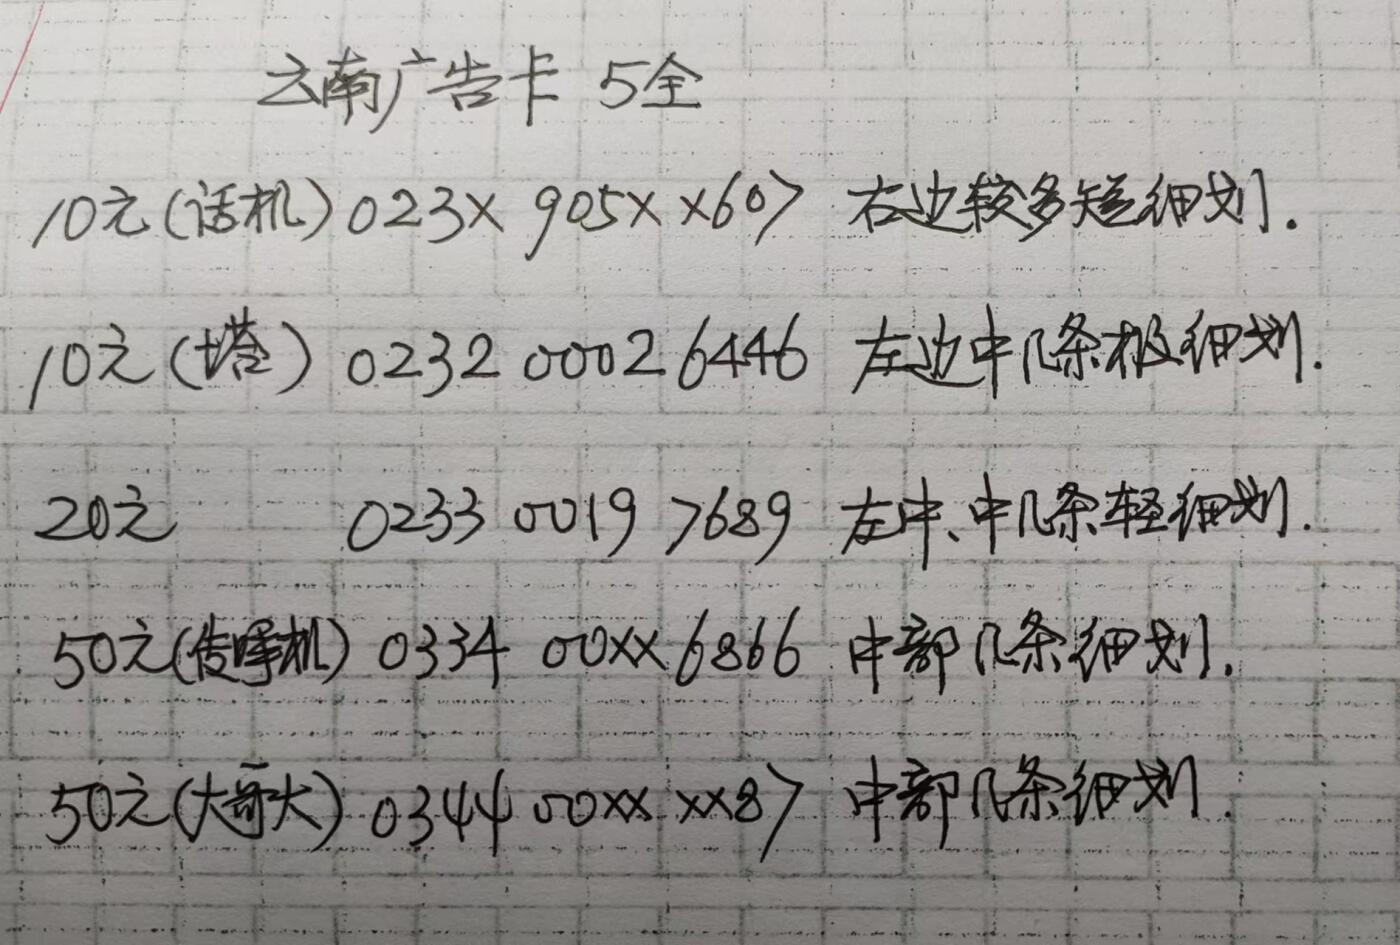 云南广告卡 5全
10元(话机) 023X 905X X607 右边较多短细划.
10元(塔) 0232 0002 6446 左边中几条极细划.
20元 0233 0019 7689 左中、中几条轻细划.
50元(传呼机) 0334 00XX 6866 中部几条细划.
50元(大哥大) 0344 00XX XX87 中部几条细划.